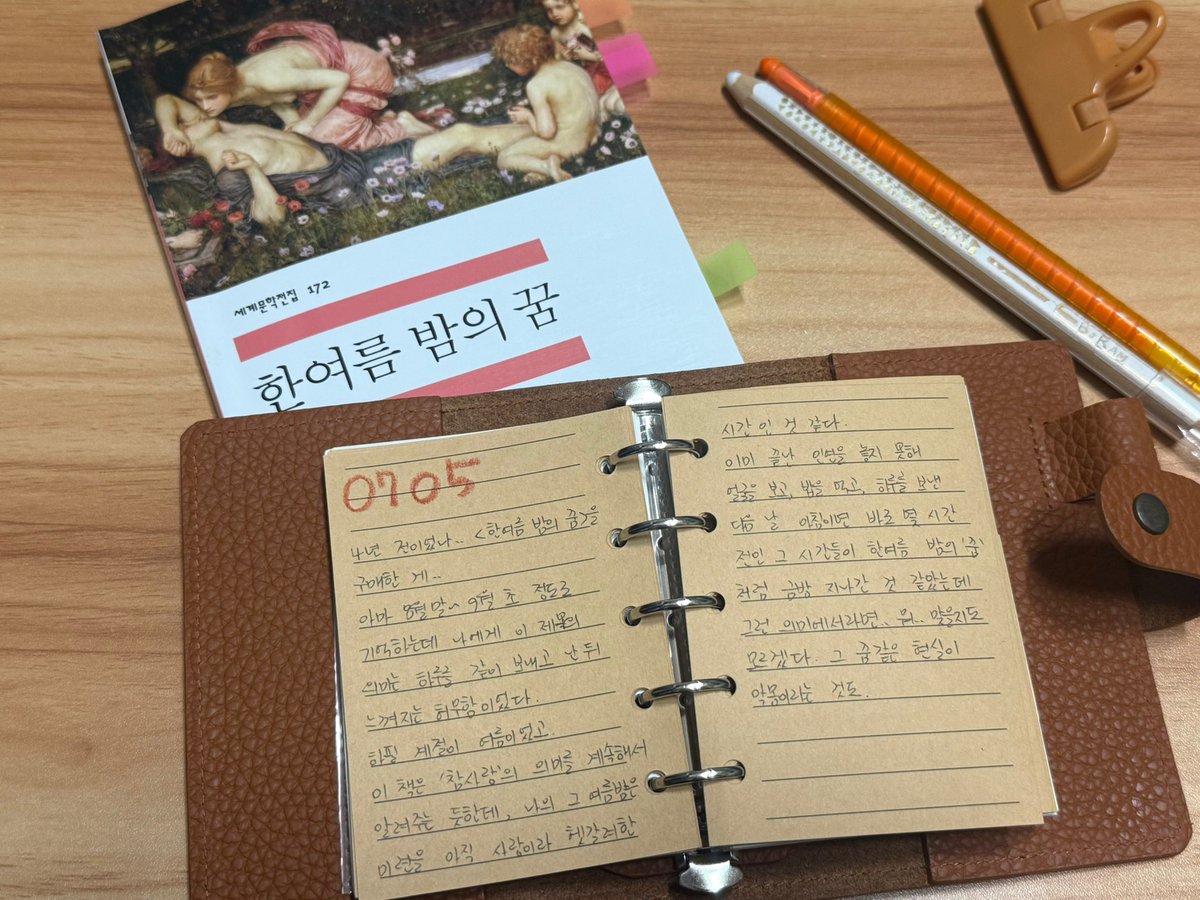 세계문학전집 172
한여름 밤의 꿈
BOKAM
0705
4년 전이었나.. <한여름 밤의 꿈>을
구매한 게..
아마 8월 말~ 9월 초 정도로
기억하는데 나에게 이 제목의
의미는 하루를 같이 보내고 난 뒤
느껴지는 허무함이었다.
하필 계절이 여름이었고.
이 책은 '참사랑'의 의미를 계속해서
알려주는 듯한데, 나의 그 여름밤은
미련을 아직 사랑이라 헷갈려한
시간인 것 같다.
이미 끝난 인연을 놓지 못해
얼굴을 보고, 밥을 먹고, 하루를 보낸
다음 날 아침이면 바로 몇 시간
전인 그 시간들이 한여름 밤의 '꿈'
처럼 금방 지나간 것 같았는데
그런 의미에서라면.. 뭐.. 맞을지도
모르겠다. 그 꿈같은 현실이
악몽이라는 것도.